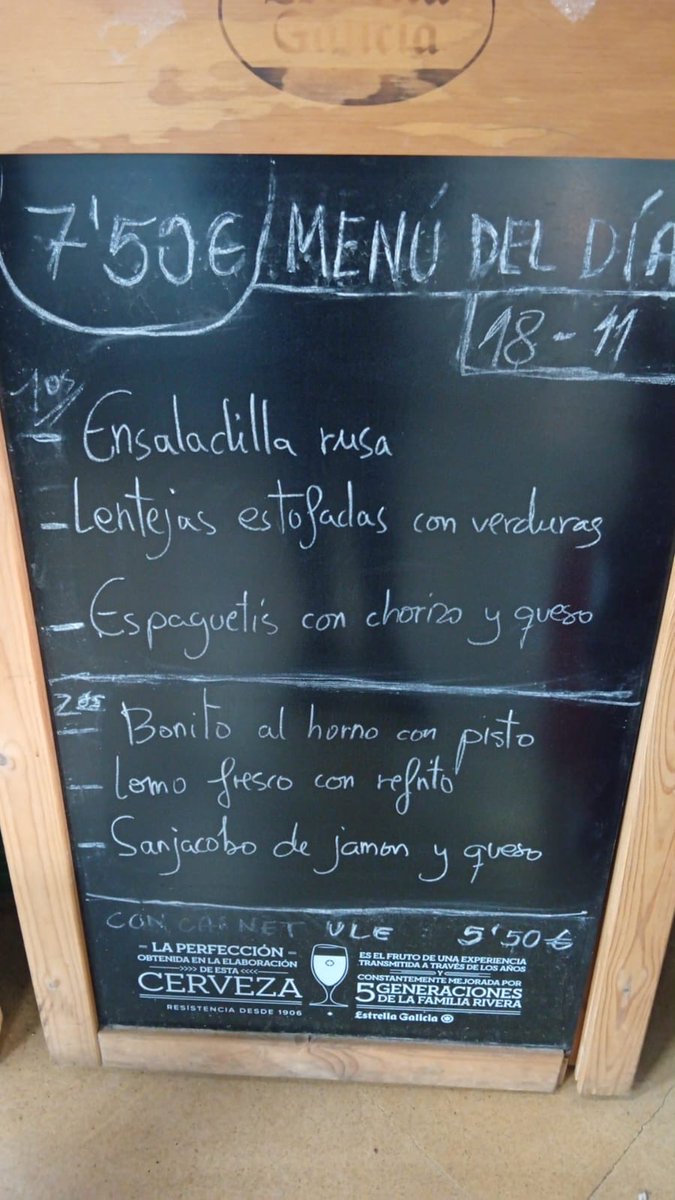 Estrella
Galicia
7'50€ MENÚ DEL DÍA
18-11
1os
- Ensaladilla rusa
- Lentejas estofadas con verduras
- Espaguetis con chorizo y queso
2os
- Bonito al horno con pisto
- Lomo fresco con refrito
- Sanjacobo de jamon y queso
CON CARNET ULE 5'50€
- LA PERFECCIÓN -
OBTENIDA EN LA ELABORACIÓN
>>>> DE ESTA <<<<
CERVEZA
RESISTENCIA DESDE 1906
ES EL FRUTO DE UNA EXPERIENCIA
TRANSMITIDA A TRAVÉS DE LOS AÑOS
Y
CONSTANTEMENTE MEJORADA POR
5 GENERACIONES
DE LA FAMILIA RIVERA
Estrella Galicia